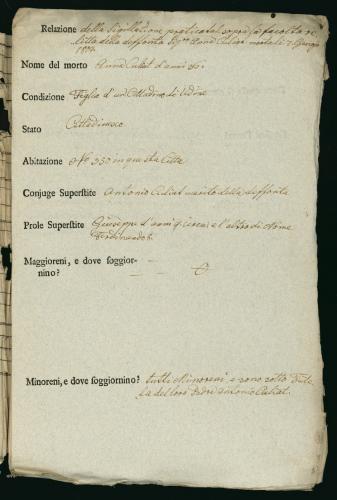 Relazione della Sigillazione praticatasi sopra la facoltà re
litta della deffonta Sigra Anna Cubat mortali 7. Giugno
1804
Nome del morto Anna Cubat d'anni 36.
Condizione Figlia d'un Cittadino di Udine
Stato Cittadinesco
Abitazione Nº 330 in questa Città
Conjuge Superstite Antonio Cubat marito della deffonta
Prole Superstite Giuseppe d'anni 9 circa, e l'altro di Nome
Ferdinando 6.
Maggioreni, e dove soggior- —
nino? — —
Minoreni, e dove soggiornino? tutti Minoreni, e sono sotto Tute
la del loro Padre Antonio Cubat.